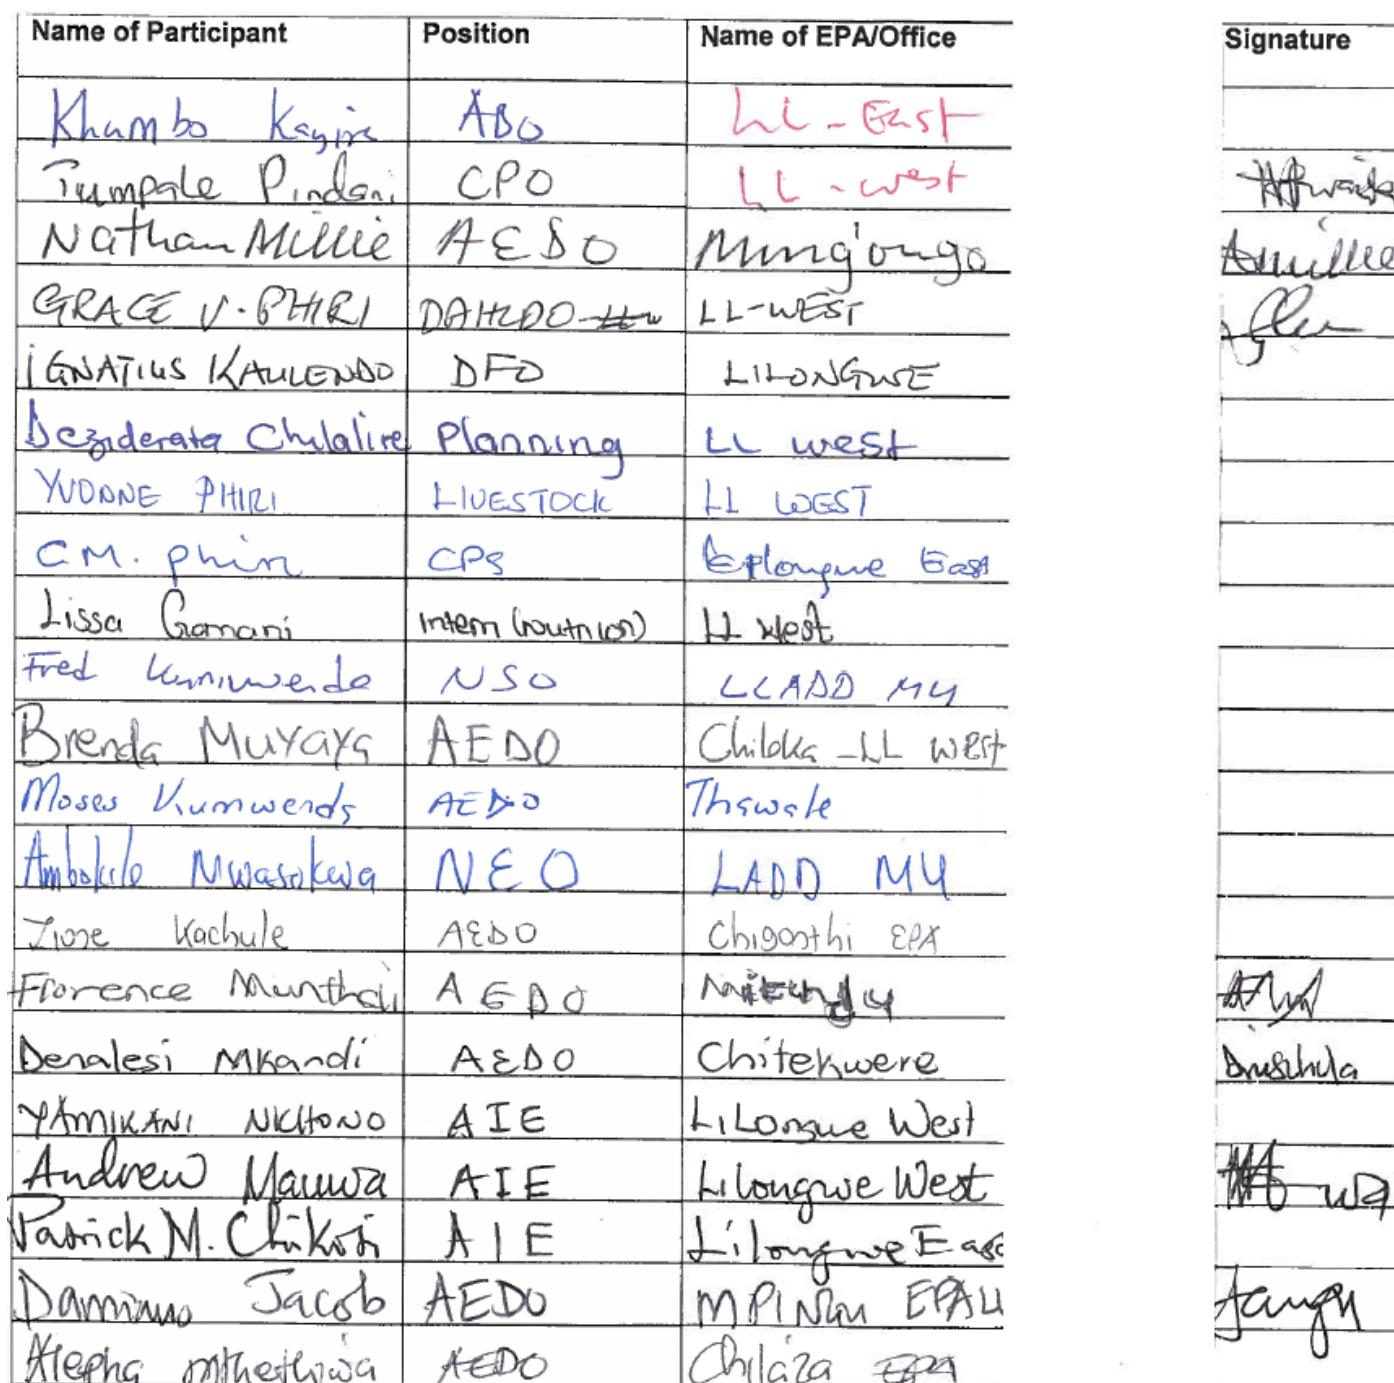 Name of Participant Position Name of EPA/Office Signature
Khambo Kayira ABO LL-East
Tumpale Pindani CPO LL-west
Nathan Millie AEDO Ming'ongo Amillie
GRACE V. PHIRI DAHLDO LL-WEST
IGNATIUS KAULENDO DFO LILONGWE
Deziderata Chilalire Planning LL west
YVONNE PHIRI LIVESTOCK LL WEST
C.M. phiri CPS East
Lissa Gomani Intern LL West
Fred NSO LLADD MU
Brenda Muyaya AEDO LL West
Moses Kumwenda AEDO Thawale
Ambokile NEO LADD MU
Kachule AEDO Chigonthi EPA
Florence Munthali AEDO
Denalesi Mkandi AEDO Chitekwere
YAMIKANI NKHONO AIE LiLongwe West
Andrew Mauwa AIE Lilongwe West
Patrick M. AIE Lilongwe East
Jacob AEDO
AEDO Chilaza EPA